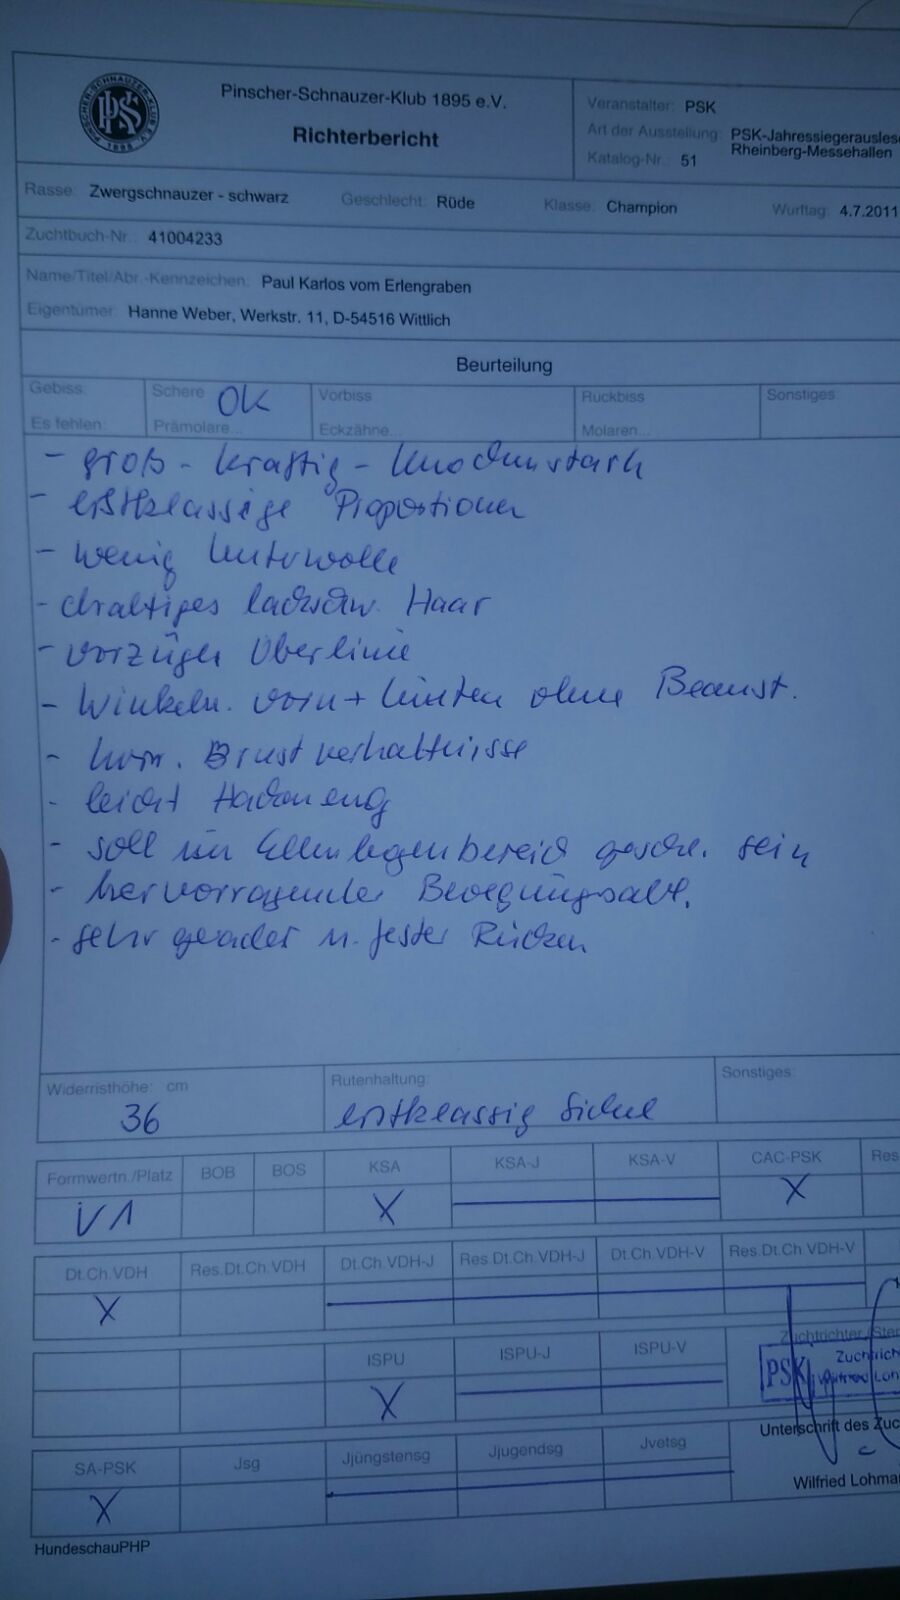 Pinscher-Schnauzer-Klub 1895 e.V.
Richterbericht
PINSCHER-SCHNAUZER-KLUB E.V.
PSK
1895
Veranstalter: PSK
Art der Ausstellung: PSK-Jahressiegerausles
Rheinberg-Messehallen
Katalog-Nr.: 51
Rasse: Zwergschnauzer - schwarz Geschlecht: Rüde Klasse: Champion Wurftag: 4.7.2011
Zuchtbuch-Nr.: 41004233
Name/Titel/Abr.-Kennzeichen: Paul Karlos vom Erlengraben
Eigentümer: Hanne Weber, Werkstr. 11, D-54516 Wittlich
Beurteilung
Gebiss: Schere OK Vorbiss Rückbiss Sonstiges:
Es fehlen: Prämolare... Eckzähne... Molaren...
- groß - kräftig - knochenstark
- erstklassige Proportionen
- wenig Unterwolle
- drahtiges lackschw. Haar
- vorzügl. Oberlinie
- Winkeln. vorn + hinten ohne Beanst.
- harm. Brustverhältnisse
- leicht Hackeneng
- soll im Ellenbogenbereich geschl. sein
- hervorragender Bewegungsabl.
- sehr gerader u. fester Rücken
Widerristhöhe: cm Rutenhaltung: Sonstiges:
36 erstklassig Sichel
Formwertn./Platz BOB BOS KSA KSA-J KSA-V CAC-PSK Res
V1 X X
Dt.Ch.VDH Res.Dt.Ch.VDH Dt.Ch.VDH-J Res.Dt.Ch.VDH-J Dt.Ch.VDH-V Res.Dt.Ch.VDH-V
X
ISPU ISPU-J ISPU-V Zuchtrichter/Ste
X PSK Zuchtrich
Unterschrift des Zuc
SA-PSK Jsg Jjüngstensg Jjugendsg Jvetsg
X Wilfried Lohma
HundeschauPHP